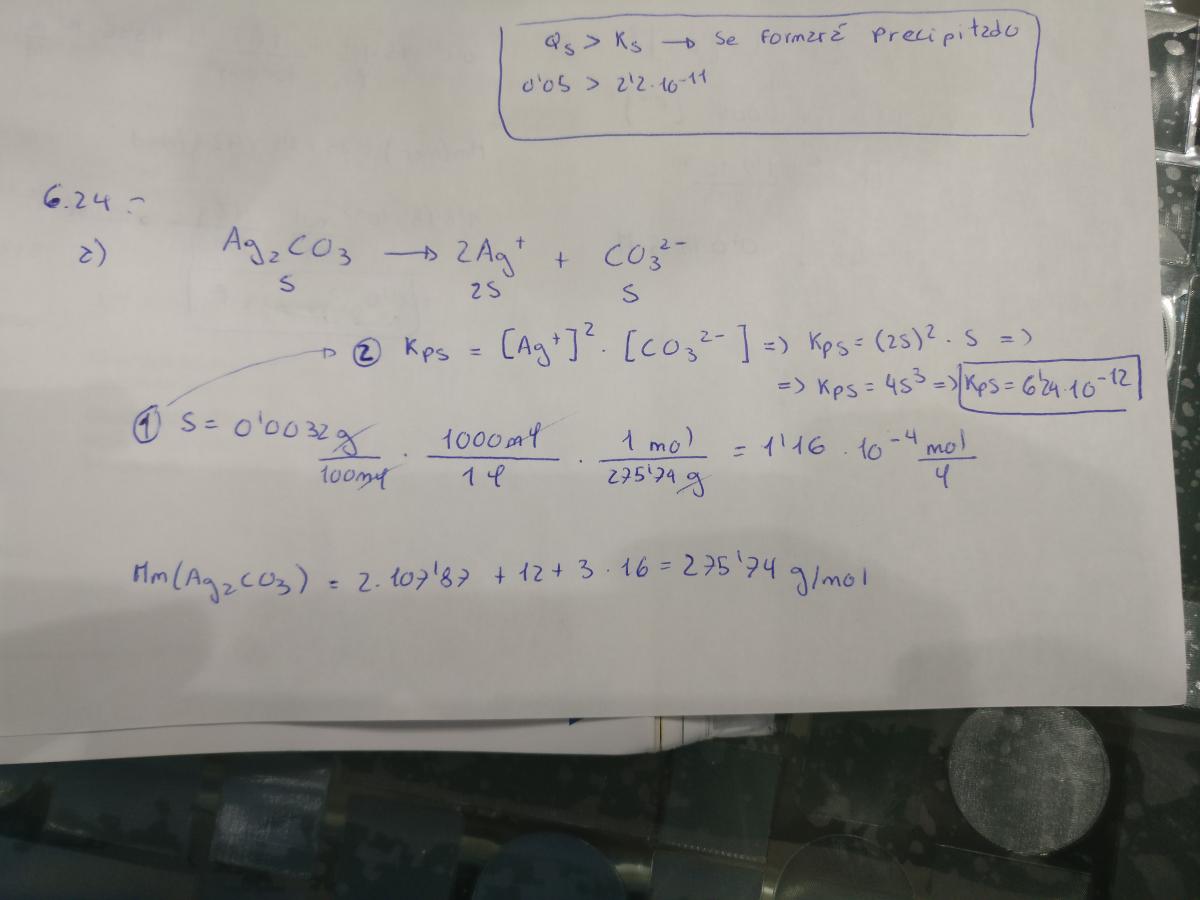 Qs > Ks → Se formará precipitado
0'05 > 2'2·10⁻¹¹
6.24 :-
a) Ag₂CO₃ → 2Ag⁺ + CO₃²⁻
S 2S S
② Kps = [Ag⁺]² · [CO₃²⁻] => Kps = (2S)² · S =>
=> Kps = 4S³ => Kps = 6'24·10⁻¹²
① S = 0'0032 g/100ml · 1000ml/1l · 1 mol/275'74 g = 1'16 · 10⁻⁴ mol/l
Mm(Ag₂CO₃) = 2·107'87 + 12 + 3·16 = 275'74 g/mol